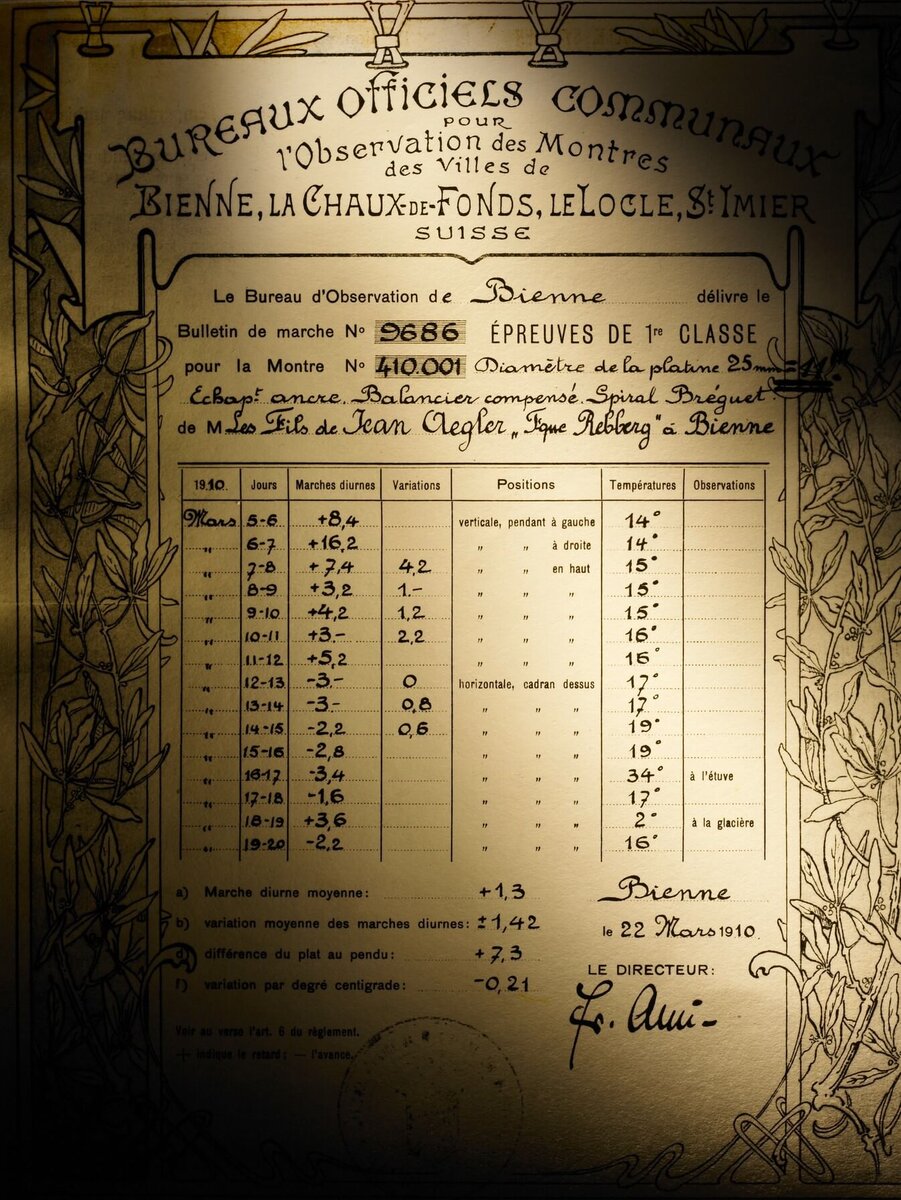 BUREAUX OFFICIELS COMMUNAUX
POUR
l'Observation des Montres
des Villes de
BIENNE, LA CHAUX-DE-FONDS, LE LOCLE, St IMIER
SUISSE
Le Bureau d'Observation de Bienne délivre le
Bulletin de marche No 9686 ÉPREUVES DE 1re CLASSE
pour la Montre No 410.001 Diamètre de la platine 25 mm = 11'''
Echapt ancre. Balancier compensé. Spiral Bréguet.
de M Les Fils de Jean Aegler „Fque Rebberg" à Bienne
1910. Jours Marches diurnes Variations Positions Températures Observations
Mars 5-6 +8,4 verticale, pendant à gauche 14°
„ 6-7 +16,2 „ „ à droite 14°
„ 7-8 +7,4 4,2 „ „ en haut 15°
„ 8-9 +3,2 1.- „ „ „ 15°
„ 9-10 +4,2 1,2 „ „ „ 15°
„ 10-11 +3.- 2,2 „ „ „ 16°
„ 11-12 +5,2 „ „ „ 16°
„ 12-13 -3.- 0 horizontale, cadran dessus 17°
„ 13-14 -3.- 0,8 „ „ „ 17°
„ 14-15 -2,2 0,6 „ „ „ 19°
„ 15-16 -2,8 „ „ „ 19°
„ 16-17 -3,4 „ „ „ 34° à l'étuve
„ 17-18 -1,6 „ „ „ 17°
„ 18-19 +3,6 „ „ „ 2° à la glacière
„ 19-20 -2,2 „ „ „ 16°
a) Marche diurne moyenne: +1,3
b) variation moyenne des marches diurnes: ±1,42
d) différence du plat au pendu: +7,3
f) variation par degré centigrade: -0,21
Bienne
le 22 Mars 1910.
LE DIRECTEUR:
Voir au verso l'art. 6 du règlement.
+ indique le retard; — l'avance.